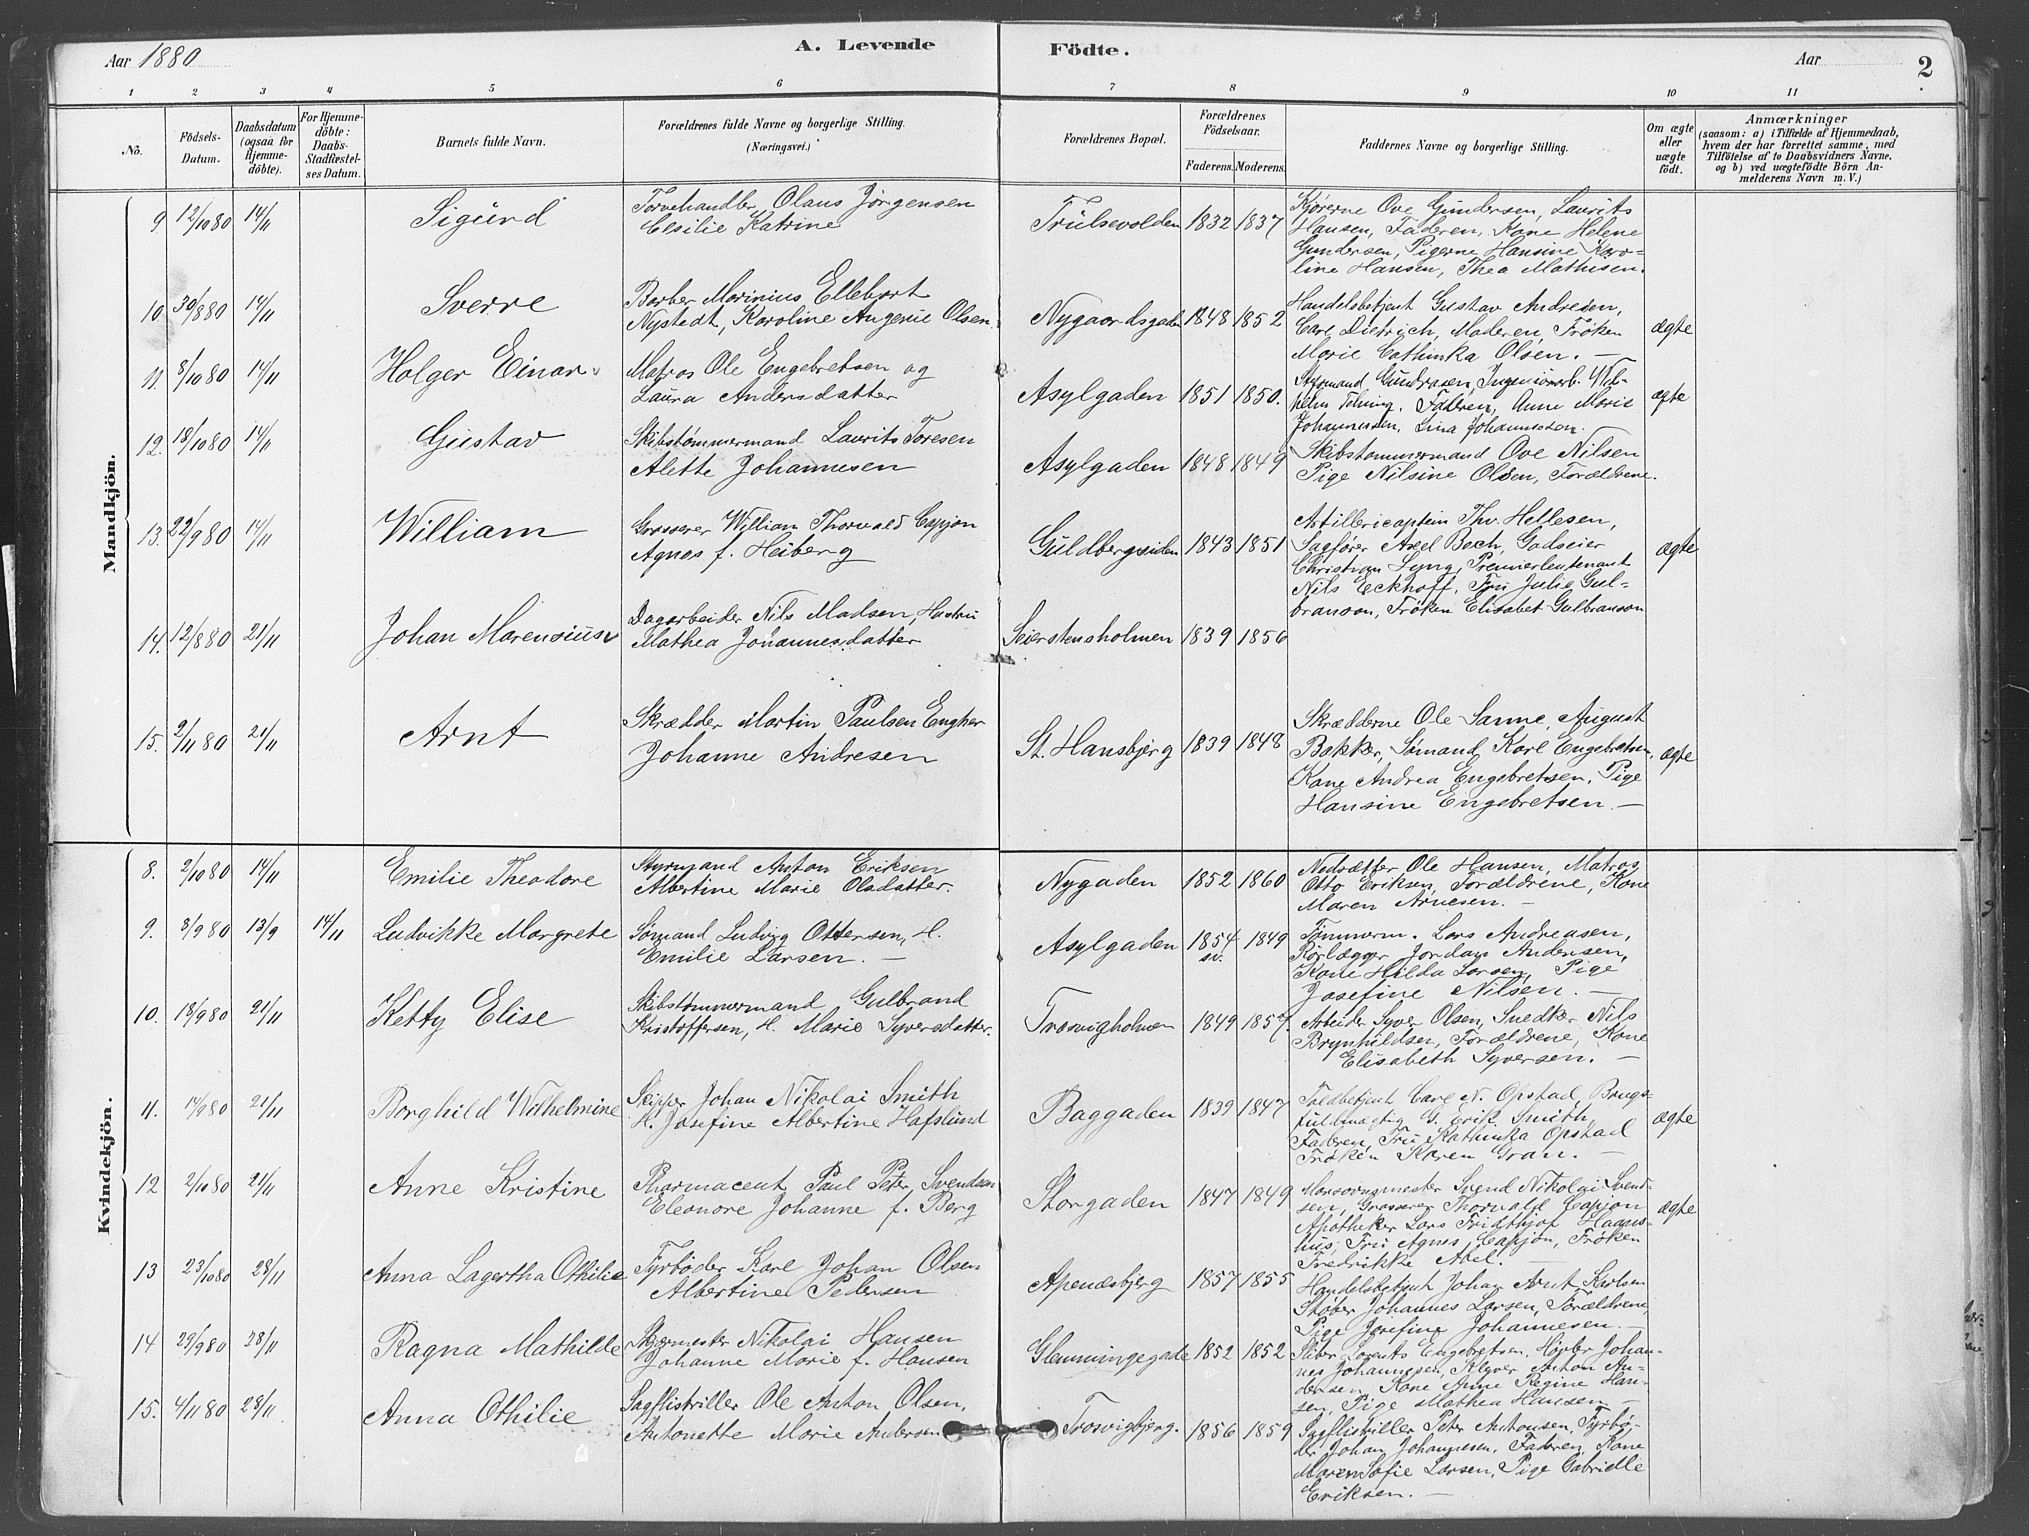 Aar 1880
A. Levende
Födte.
Aar
2
1 2 3 4 5 6 7 8 9 10 11
No.
Födsels-Datum.
Daabsdatum (ogsaa for Hjemmedöbte).
For Hjemmedöbte: Daabs-Stadfæstelses Datum.
Barnets fulde Navn.
Forældrenes fulde Navne og borgerlige Stilling. (Næringsvei.)
Forældrenes Bopæl.
Forældrenes Födselsaar.
Faderens. Moderens.
Faddernes Navne og borgerlige Stilling.
Om ægte eller uægte födt.
Anmærkninger
(saasom: a) i Tilfælde af Hjemmedaab, hvem der har forrettet samme, med Tilföielse af to Daabsvidners Navne, og b) ved uægtefödte Börn Anmelderens Navn m. V.)
Mandkjön.
9 12/10 80 14/11 Sigurd
Torvehandler Olaus Jørgensen
Cesilie Katrine
Trulsevolden 1832 1837
Kjørerne Ove Gundersen, Laurits
Hansen, Faderen, Kone Helene
Gundersen, Pigerne Hansine Karo-
line Hansen, Thea Mathisen.
10 30/8 80 14/11 Sverre
Barber Marinius Ellebart
Nystedt, Karoline Angerie Olsen
Nygaardsgaden 1848 1852
Handelsbetjent Gustav Andresen,
Carl Dietrich, Moderen, Frøken
Marie Cathinka Olsen. —
ægte
11. 8/10 80 14/11 Holger Einar
Matros Ole Engebretsen og
Laura Andersdatter
Asylgaden 1851 1850.
Styrmand Gundrasen, Ingeniørarb. Wil-
helm Tolning, Faderen, Anne Marie
Johannessen, Lina Johannessen.
ægte
12. 18/10 80 14/11 Gustav
Skibstømmermand Laurits Toresen
Alette Johannesen
Asylgaden 1848 1849
Skibstømmermand Ove Nilsen
Pige Nilsine Olsen, Forældrene.
13. 22/9 80 14/11 William
Grosserer William Thorwald Capjon
Agnes f. Heiberg
Guldbergsiden 1843 1851
Artillericaptein Thv. Hellesen,
Sagfører Axel Bech, Godseier
Christian Lyng, Premierleutenant
Nils Eckhoff, Fru Julie Gul-
branson, Frøken Elisabet Gulbranson
ægte
14. 12/8 80 21/11 Johan Marensius
Dagarbeider Nils Madsen, Hustru
Mathea Johannesdatter
Seierstensholmen 1839 1856
15. 2/11 80 21/11 Arnt
Skrædder Martin Paulsen Engher
Johanne Andresen
St. Hansbjerg 1839 1848
Skrædderne Ole Sanne, August
Bakker, Sømand Karl Engebretsen,
Kone Andrea Engebretsen, Pige
Hansine Engebretsen. —
ægte
Kvindekjön.
8. 2/10 80 14/11 Emilie Theodore
Styrmand Anton Eriksen
Albertine Marie Olsdatter.
Nygaden 1852 1860
Nedsætter Ole Hansen, Matros
Otto Eriksen, Forældrene, Kone
Maren Arnesen. —
9. 8/9 80 13/9 14/11 Ludvikke Margrete
Sømand Ludvig Ottersen, H.
Emilie Larsen. —
Asylgaden 1854 1849
Tømmerm. Lars Andreasen,
Rørlægger Jordan Andersen,
Kone Hilda Larsen, Pige
Josefine Nilsen. —
10. 18/9 80 21/11 Ketty Elise
Skibstømmermand Gulbrand
Kristoffersen, H. Marie Syversdatter.
Trosvigholmen 1849 1857.
Arbeider Syver Olsen, Snedker Nils
Brynhildsen, Forældrene, Kone
Elisabeth Syversen. —
11. 14/9 80 21/11 Borghild Wilhelmine
Skipper Johan Nikolai Smith
H. Josefine Albertine Hafslund
Baggaden 1839 1847
Toldbetjent Carl N. Opstad, Brugs-
fuldmægtig G. Erik Smith,
Faderen, Fru Kathinka Opstad
Frøken Karen Gran. —
ægte
12 2/10 80 21/11 Anne Kristine
Pharmaceut Paul Peter Svendsen
Eleonore Johanne f. Berg
Storgaden 1847 1849
Svend Nikolai Svend-
sen, Grosserer Thorvald Capjon
Apotheker Lars Fridthjof Haans-
hus, Fru Agnes Capjon, Frøken
Fredrikke Abel. —
ægte
13 23/10 80 28/11 Anna Lagertha Othilie
Fyrbøder Karl Johan Olsen
Albertine Pedersen
Apenæsbjerg 1857 1855
Handelsbetjent Johan Arnt Karlsen
Støber Johannes Larsen, Forældrene
Pige Josefine Johannesen. —
14 29/9 80 28/11 Ragna Mathilde
Nikolai Hansen
Johanne Marie f. Hansen
Glemmingegade 1852 1852
Støber Lorents Engebretsen, Høvler Johan-
nes Johannesen, Klyver Anton An-
dersen, Kone Anne Regine Han-
sen, Pige Mathea Hansen —
15. 4/11 80 28/11 Anna Othilie
Sagflistriller Ole Anton Olsen,
Antonette Marie Andersen
Trosvigbjerg. 1856 1859
Sagflistriller Peter Antonsen, Fyrbø-
der Johan Johannesen, Faderen, Kone
Maren Sofie Larsen, Pige Gabrielle
Eriksen. —